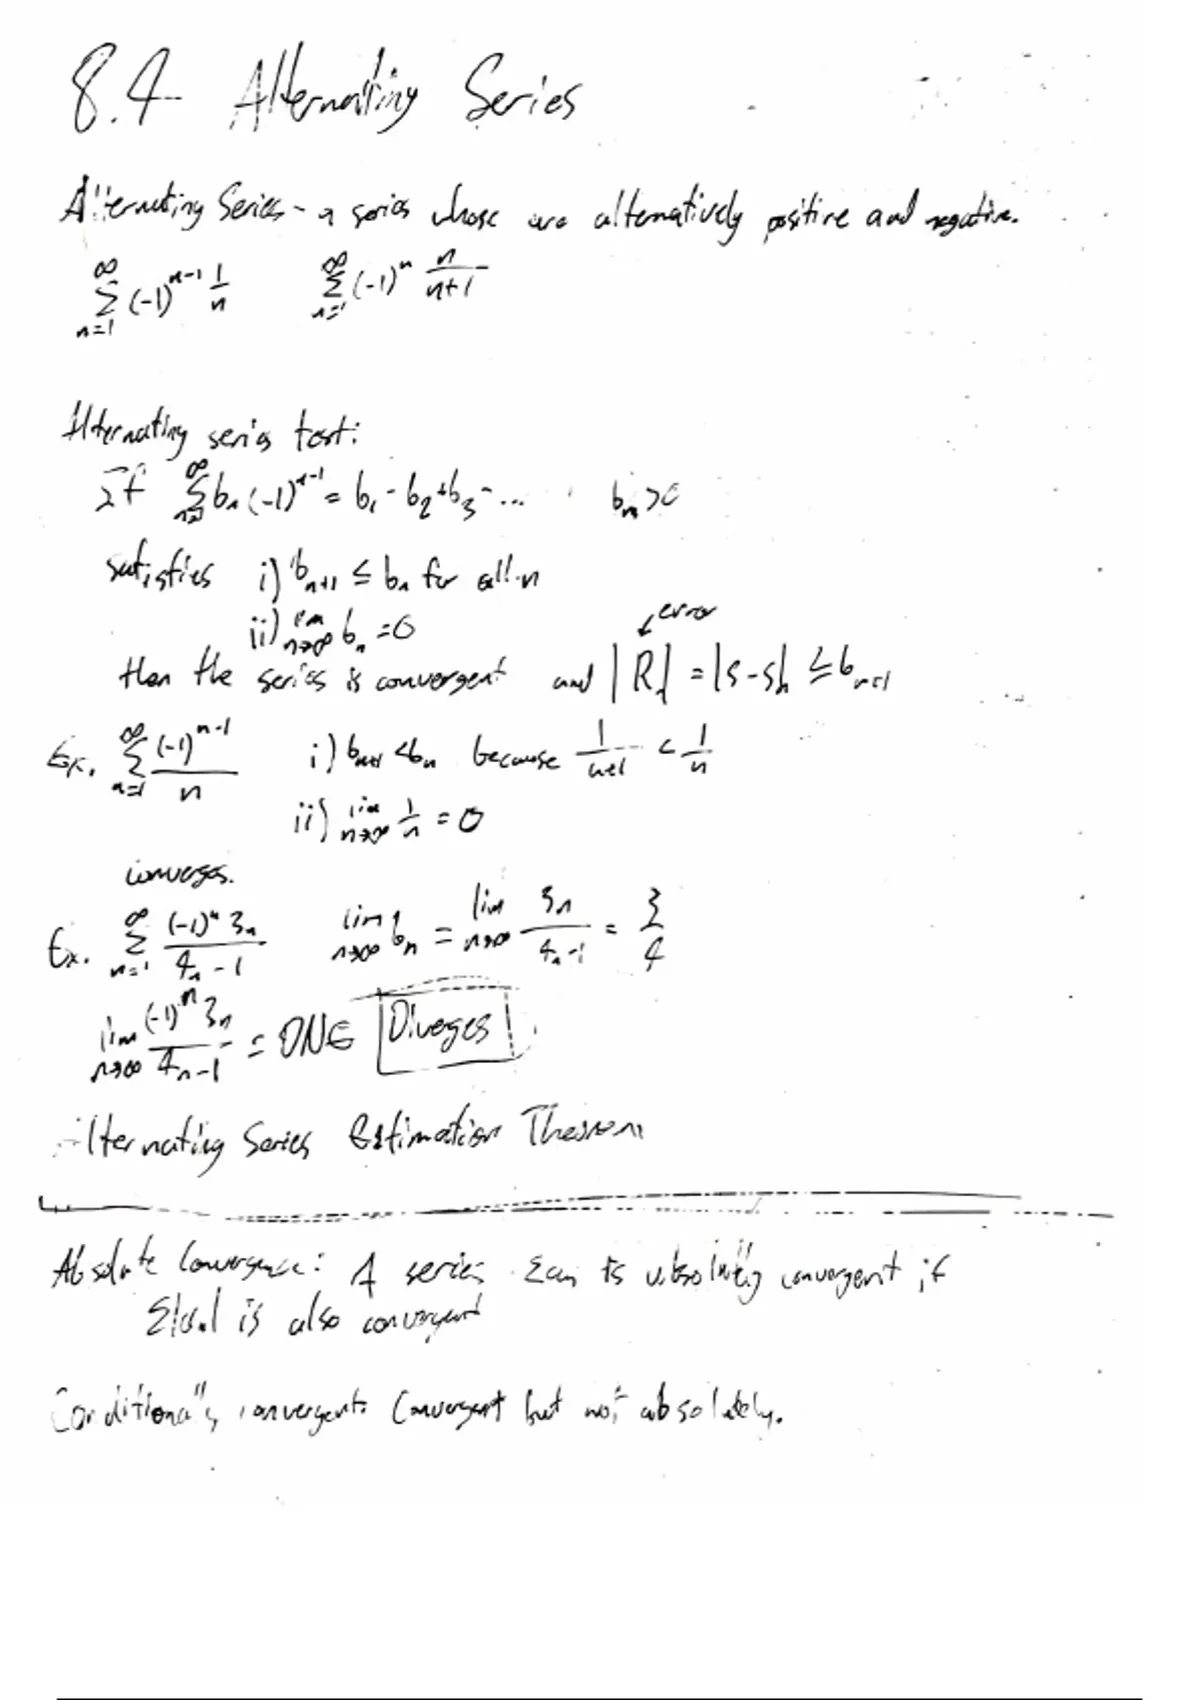 8.4 Alternating Series
Alternating Series - a series whose are alternatively positive and negative.
∞∑n=1 (-1)^(n-1) 1/n    ∞∑n=1 (-1)^n n/(n+1)
Alternating series test:
If ∞∑n=1 bn (-1)^(n-1) = b1 - b2 + b3 - ...    bn > 0
satisfies i) bn+1 ≤ bn for all n
ii) lim n→∞ bn = 0
↙ error
then the series is convergent and |Rn| = |s - sn| ≤ bn+1
Ex. ∞∑n=1 (-1)^(n-1)/n    i) bn+1 < bn because 1/(n+1) < 1/n
ii) lim n→∞ 1/n = 0
converges.
Ex. ∞∑n=1 (-1)^n 3n/(4n-1)    lim n→∞ bn = lim n→∞ 3n/(4n-1) = 3/4
lim n→∞ (-1)^n 3n/(4n-1) = DNE Diverges
Alternating Series Estimation Theorem
Absolute Convergence: A series Σan is absolutely convergent if
Σ|an| is also convergent
Conditionally convergent: Convergent but not absolutely.